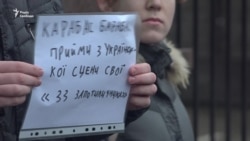 Радіо Свобода
КАРАБАС БАРАБАС
ПРИЙМИ З УКРАЇНСЬ-
КОЇ СЦЕНИ СВОЇ
« 33